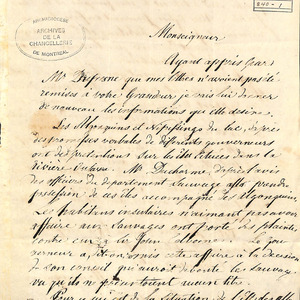 ARCHIDIOCÈSE
ARCHIVES
DE LA
CHANCELLERIE
DE MONTRÉAL
Monseigneur
Ayant appris par
Mr. que mes lettres n'avaient pas été
remises à votre Grandeur je vais lui donner
de nouveau les informations que Elle desire.
Les Algonquins et Nipissings du lac, d'après
des promesses verbales de différents gouverneurs
ont des prétentions sur les dans la
rivière Mr. Ducharme,
des affaires du département Sauvage alla prendre
possession de ces îles accompagné des Algonquins.
Les habitans insulaires n'aimant pas avoir
affaire aux Sauvages ont porté des plaintes
contre eux à Sir John Colborne. Le gou-
verneur a cette affaire à la decision
de Son conseil qui aurait débouté les Sauvages
vu qu'ils ne aucun titre.
Pour ce qui est de la situation de